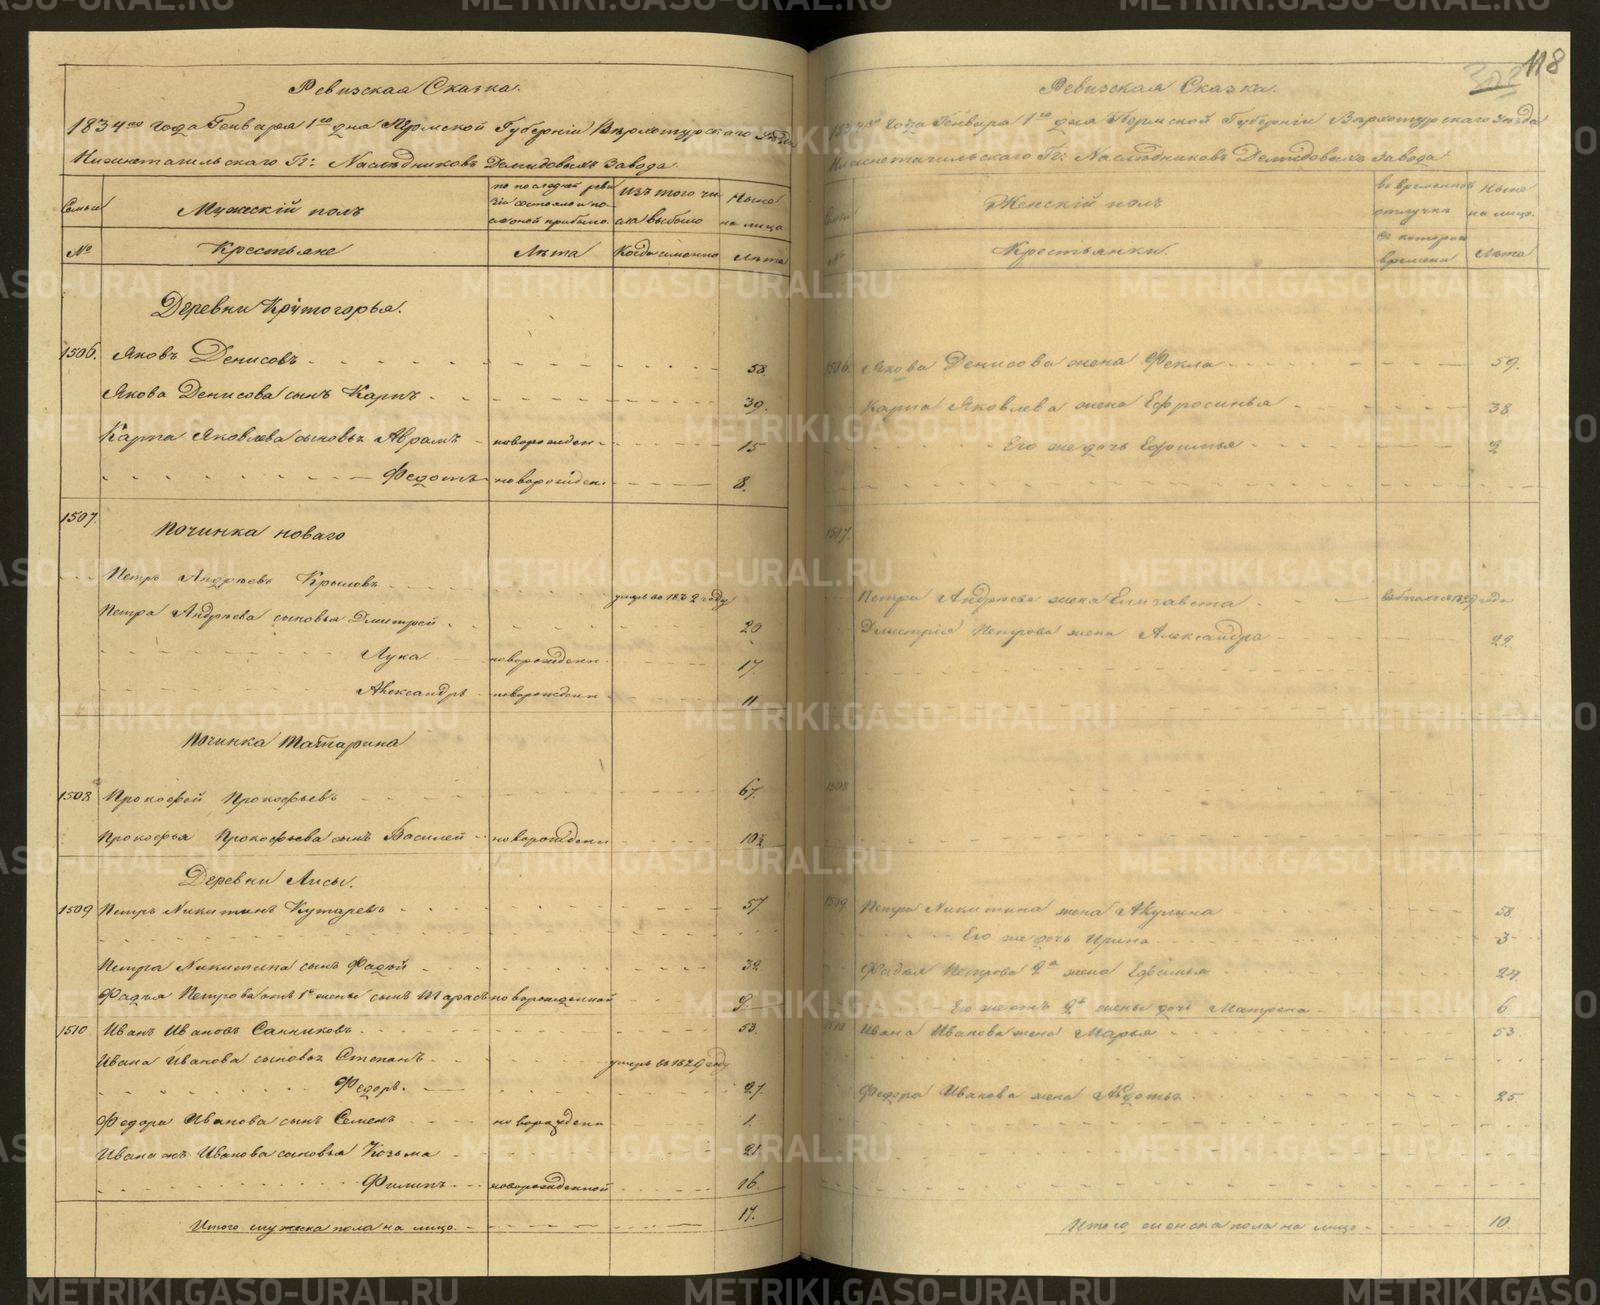 118
Ревизская Сказка.
1834го года Генваря 1го дня Пермской Губерніи Верхотурскаго уѣзда
Нижнетагильскаго Гг: Наслѣдниковъ Демидовыхъ завода
Семьи
Мужескій полъ
по последней реви
зіи состояло и по
слѣ оной прибыло
Изъ того чи
сла выбыло
Ныне
на лицо
№
Крестьяне
Лѣта
Когда именно
Лѣта
Деревни Крутогорья.
1506. Яковъ Денисовъ 58.
Якова Денисова сынъ Карпъ 39.
Карпа Яковлева сыновья Аврамъ новорожден 15
Федотъ новорожден. 8.
1507.
Починка новаго
Петръ Андреевъ Крыловъ умеръ въ 1832 году
Петра Андреева сыновья Дмитрей 20
Лука новорожденн. 17.
Александръ новорожденн 11
Починка Татарина
1508 Прокофей Прокофьевъ 67.
Прокофья Прокофьева сынъ Василей новорожденн 10½
Деревни Лисы.
1509 Петръ Никитинъ Кутаревъ 57.
Петра Никитина сынъ Фадѣй 32
Фадѣя Петрова отъ 1й жены сынъ Тарасъ новорожденной 9.
1510 Иванъ Ивановъ Санниковъ 53.
Ивана Иванова сыновья Степанъ умеръ въ 1829 году
Федоръ. 27.
Федора Иванова сынъ Семенъ новорожденн 1.
Ивана жъ Иванова сыновья Козьма 21
Филипъ новорожденной 16.
Итого мужеска пола на лицо 17.
Ревизская Сказка.
1834го года Генваря 1го дня Пермской Губерніи Верхотурскаго уѣзда
Нижнетагильскаго Гг: Наслѣдниковъ Демидовыхъ завода
Семьи
Женскій полъ
во временной
отлучке
Ныне
на лицо.
№
Крестьянки.
съ котораго
времени
Лѣта
1506. Якова Денисова жена Фекла 59.
Карпа Яковлева жена Ефросинья 38.
Его же дочь Ефимья 2
1507.
Петра Андреева жена Елизавета
Дмитрія Петрова жена Александра 22.
1508
1509. Петра Никитина жена Акулина 58.
Его же дочь Ирина 3
Фадѣя Петрова 2я жена Ефимья 24
Его же отъ 2й жены дочь Матрена 6.
1510 Ивана Иванова жена Марья 53
Федора Иванова жена Авдотья 25.
Итого женска пола на лицо 10.
METRIKI.GASO-URAL.RU